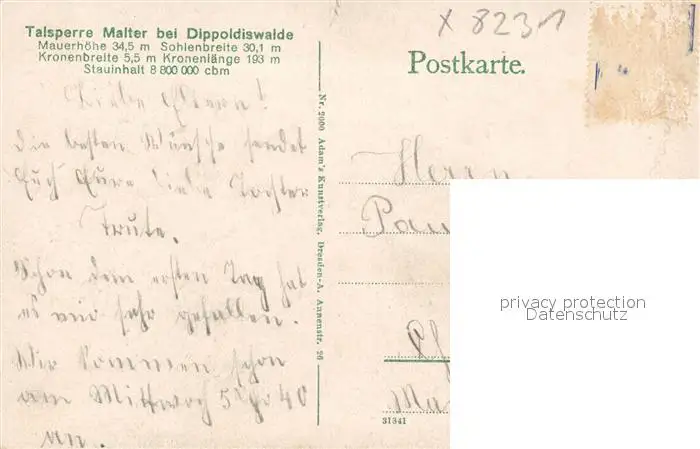 Talsperre Malter bei Dippoldiswalde
Mauerhöhe 34,5 m Sohlenbreite 30,1 m
Kronenbreite 5,5 m Kronenlänge 193 m
Stauinhalt 8 800 000 cbm
X 8231
Postkarte.
Liebe Eltern!
die besten Wünsche sendet
Euch Eure liebe Tochter
Trude.
Schon dem ersten Tag hat
es mir sehr gefallen.
Wir kommen schon
am Mittwoch 5 40
an.
Nr. 2000 Adam's Kunstverlag, Dresden-A. Annenstr. 26
Herrn
Pau
Ma
31341
privacy protection
Datenschutz